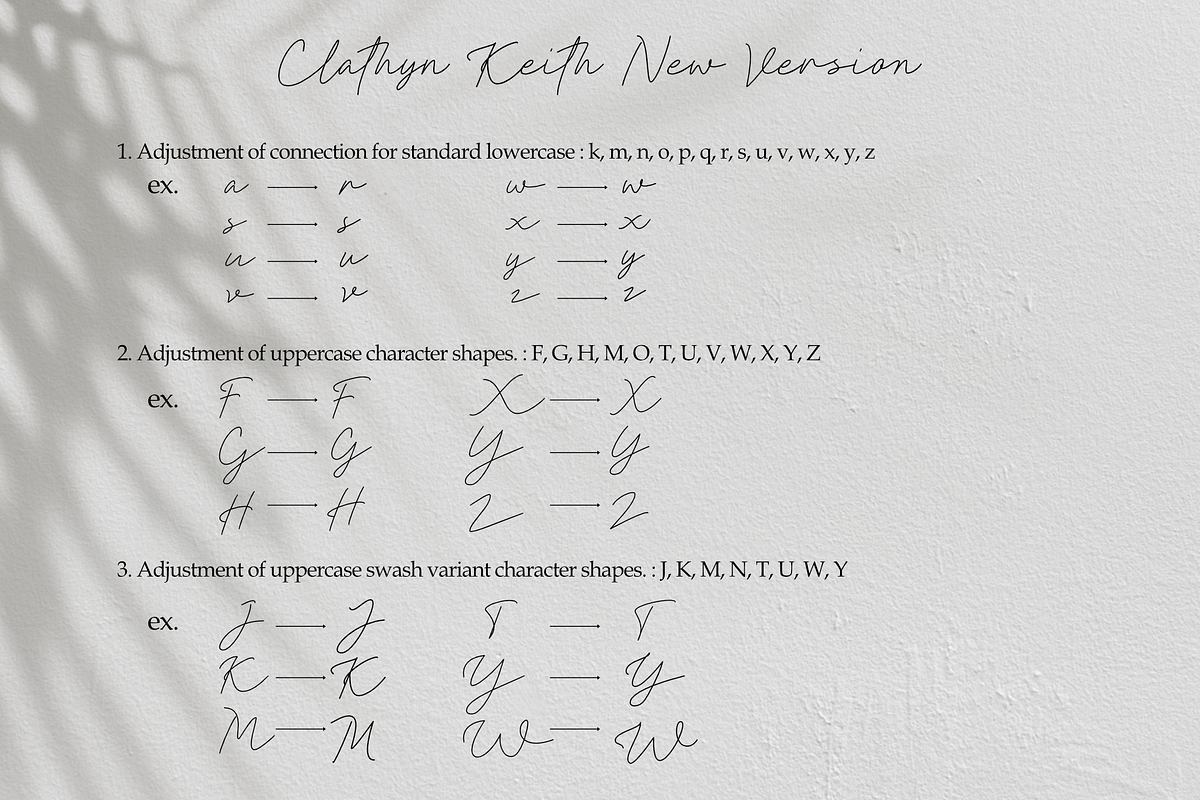 Clathyn Keith New Version
1. Adjustment of connection for standard lowercase : k, m, n, o, p, q, r, s, u, v, w, x, y, z
ex. a r w w
s s x x
u u y y
v v z z
2. Adjustment of uppercase character shapes. : F, G, H, M, O, T, U, V, W, X, Y, Z
ex. F F X X
G G Y Y
H H Z Z
3. Adjustment of uppercase swash variant character shapes. : J, K, M, N, T, U, W, Y
ex. J J T T
K K Y Y
M M W W